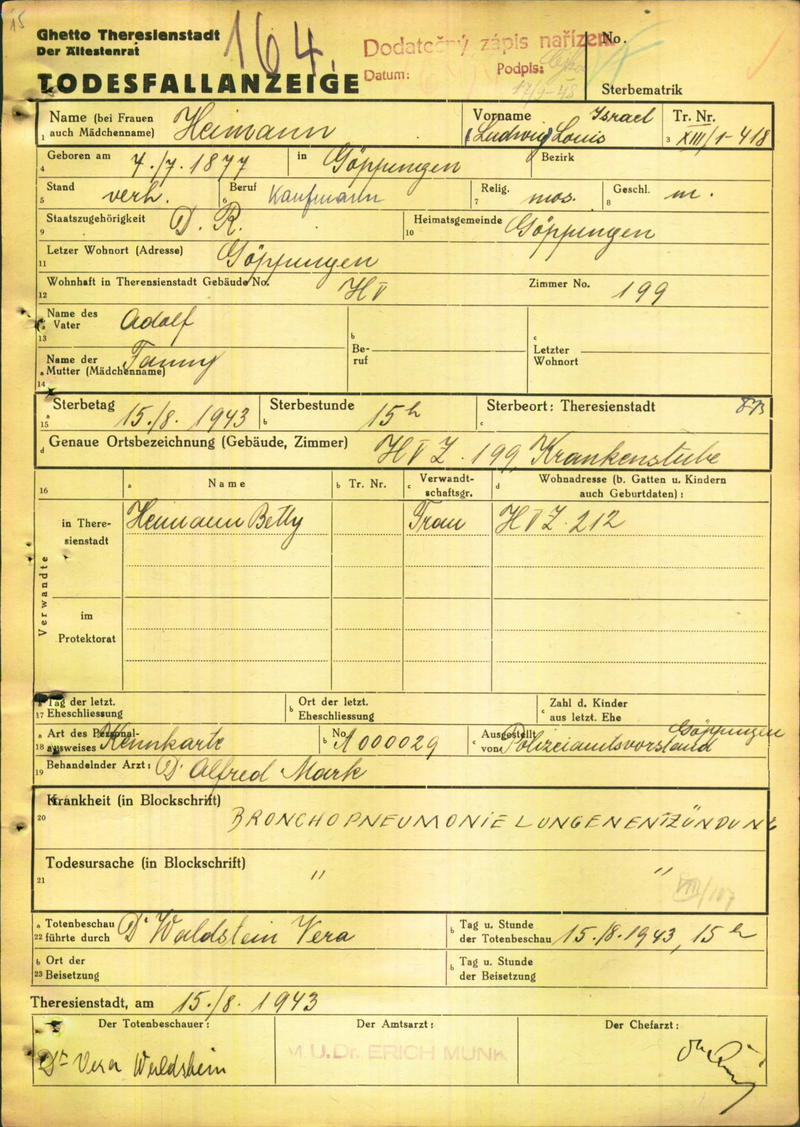 15
Ghetto Theresienstadt
Der Ältestenrat
164.
Dodatečný zápis nařízen
Datum:
Podpis:
17/9-48
No.
TODESFALLANZEIGE
Sterbematrik
1 Name (bei Frauen auch Mädchenname) Heimann
Vorname Israel (Ludwig) Louis
3 Tr. Nr. XIII/1-418
4 Geboren am 7./7. 1877 in Göppingen Bezirk
5 Stand verh. 6 Beruf Kaufmann 7 Relig. mos. 8 Geschl. m.
9 Staatszugehörigkeit D. R. 10 Heimatsgemeinde Göppingen
11 Letzer Wohnort (Adresse) Göppingen
12 Wohnhaft in Therensienstadt Gebäude No. H V Zimmer No. 199
13 a Name des Vater Adolf
b Be-ruf
c Letzter Wohnort
14 a Name der Mutter (Mädchenname) Fanny
15 a Sterbetag 15./8. 1943 b Sterbestunde 15h c Sterbeort: Theresienstadt
d Genaue Ortsbezeichnung (Gebäude, Zimmer) H V Z. 199 Krankenstube
16 a Name b Tr. Nr. c Verwandt-schaftsgr. d Wohnadresse (b. Gatten u. Kindern auch Geburtdaten) :
Verwandte
in There-sienstadt Heimann Betty Frau H V Z. 212
im Protektorat
17 a Tag der letzt. Eheschliessung b Ort der letzt. Eheschliessung c Zahl d. Kinder aus letzt. Ehe
18 a Art des Personal-ausweises Kennkarte b No. A 000029 c Ausgestellt von Polizeiamtsvorstand Göppingen
19 Behandelnder Arzt : Dr Alfred Mark
20 Krankheit (in Blockschrift) BRONCHOPNEUMONIE LUNGENENTZÜNDUNG
21 Todesursache (in Blockschrift) " "
22 a Totenbeschau führte durch Dr Waldstein Vera b Tag u. Stunde der Totenbeschau 15./8. 1943, 15h
23 b Ort der Beisetzung b Tag u. Stunde der Beisetzung
Theresienstadt, am 15./8. 1943
Der Totenbeschauer : Der Amtsarzt : Der Chefarzt :
Dr Vera Waldstein M.U.Dr. ERICH MUNK